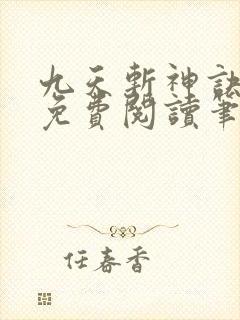 九天斬神訣
免費閱讀筆
任春香